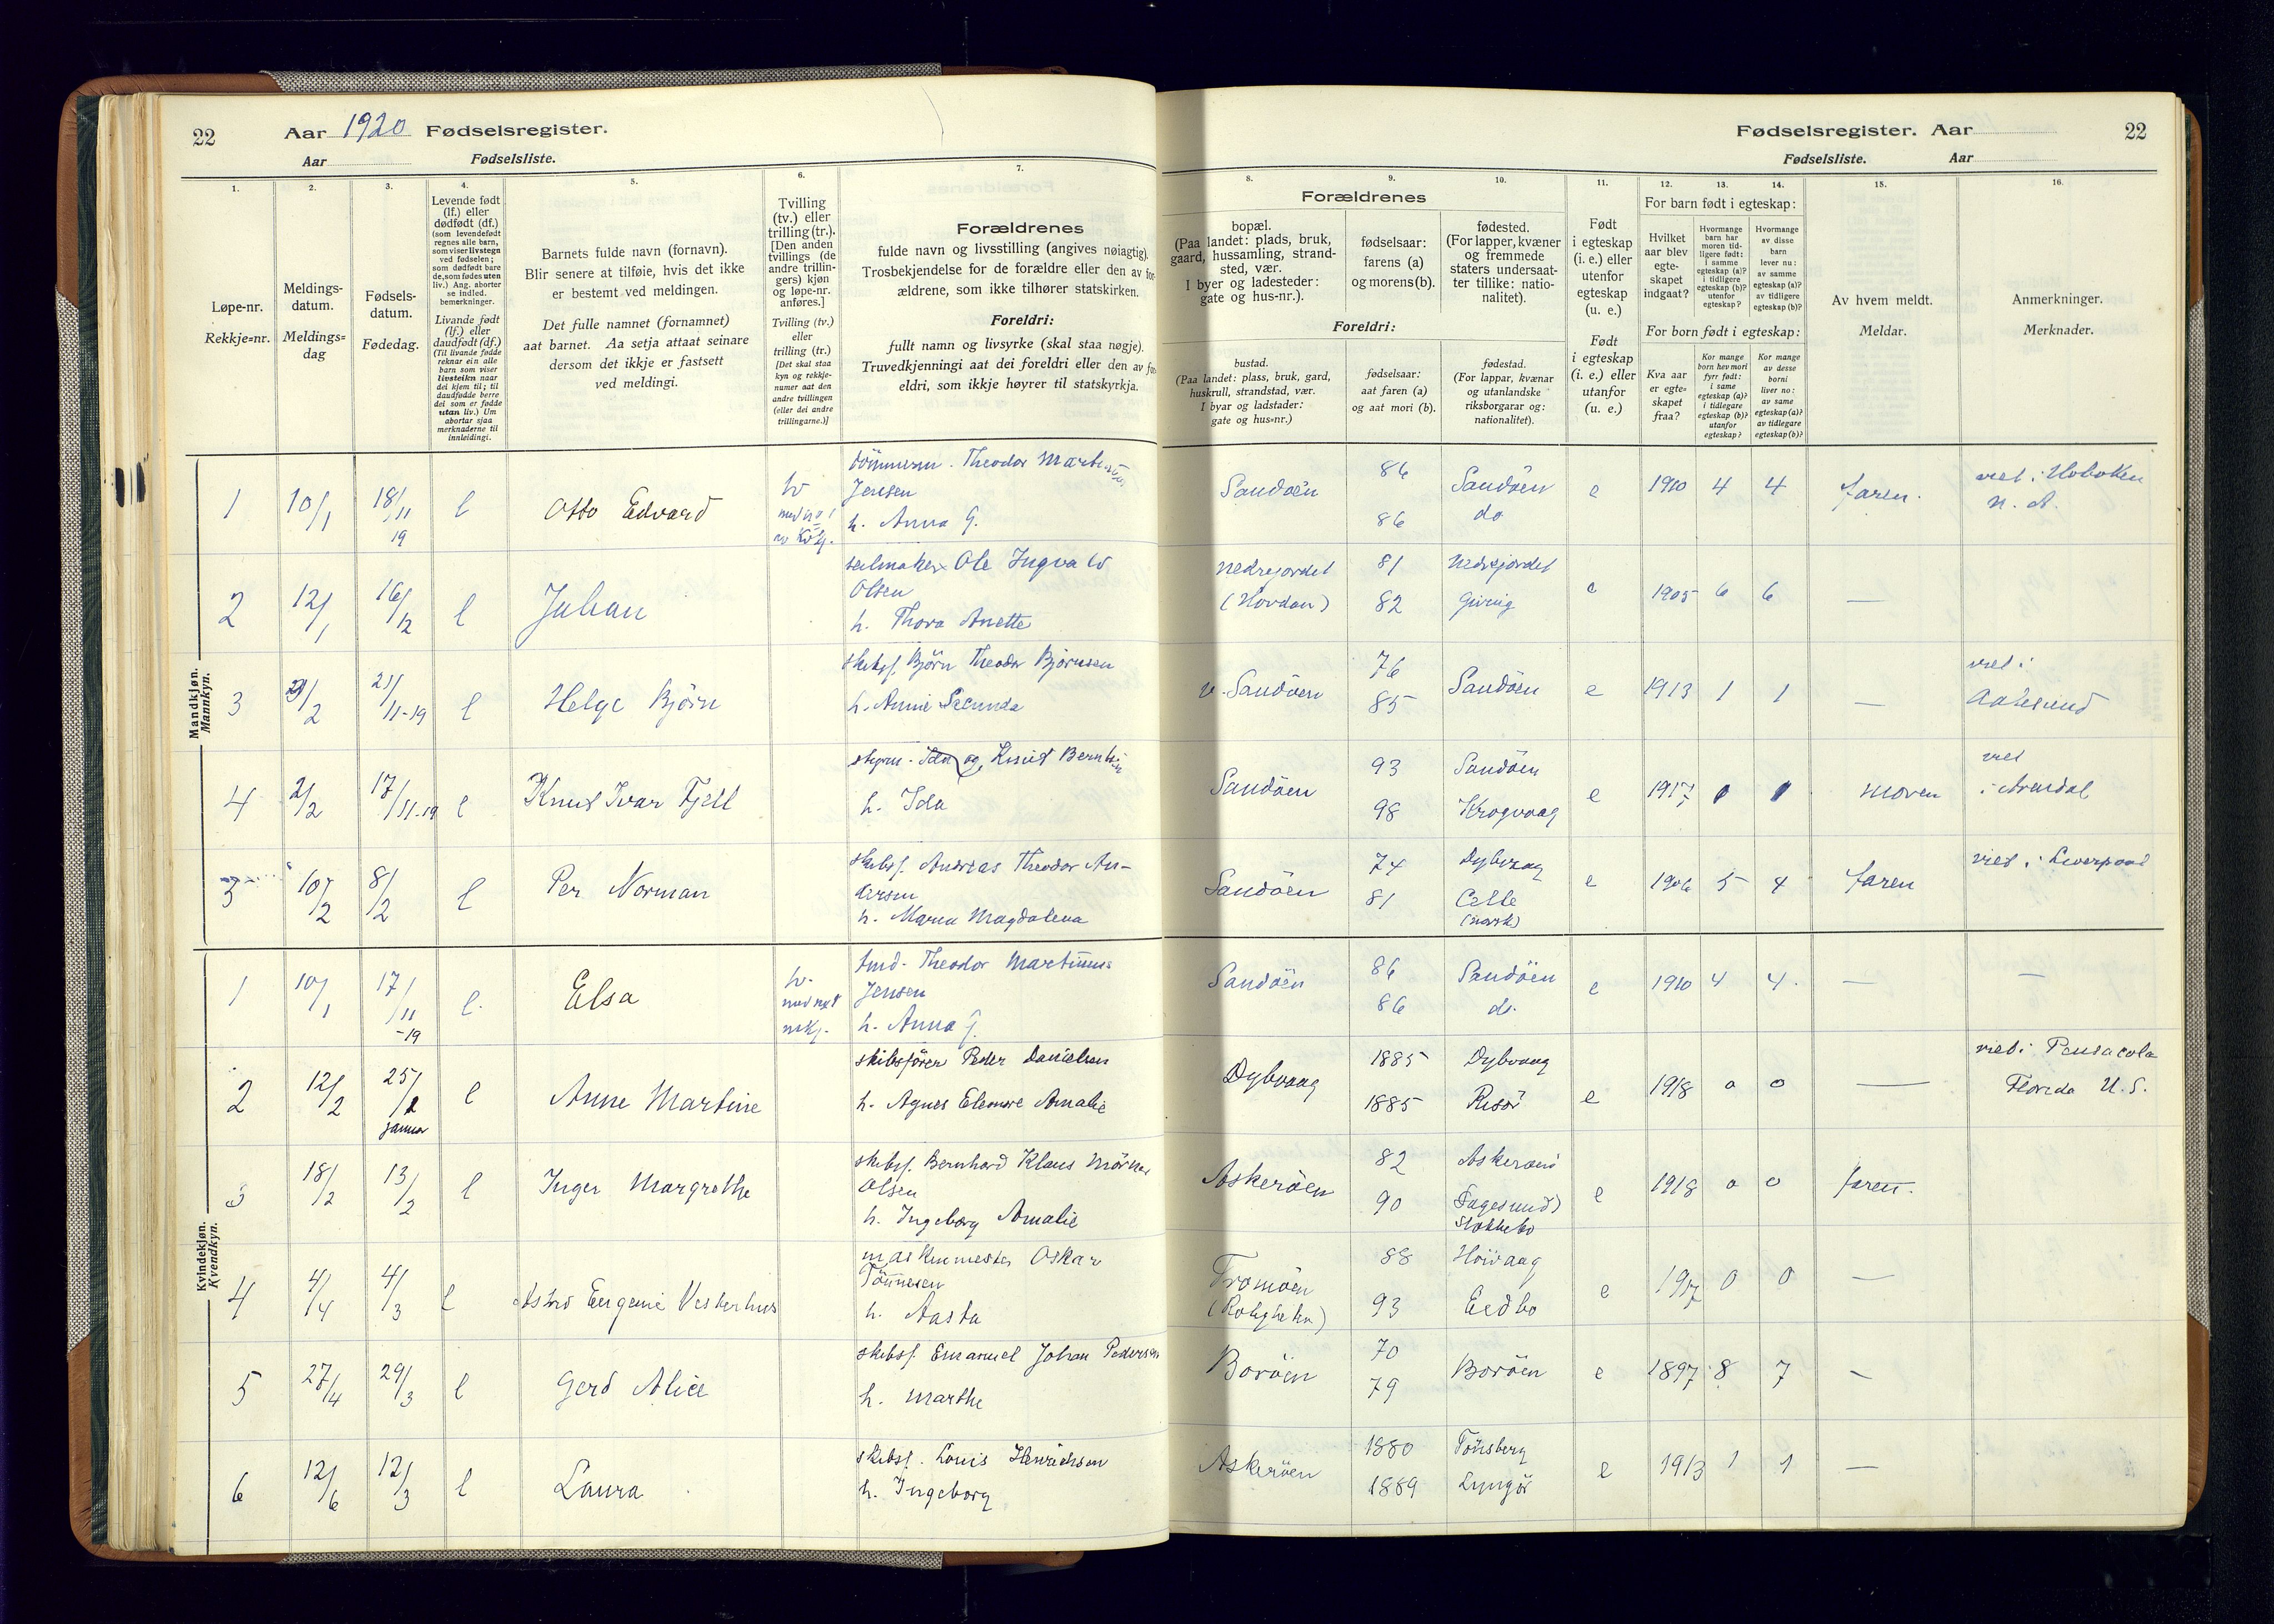 22 Aar 1920 Fødselsregister.
Aar Fødselsliste.
Fødselsregister. Aar 22
Fødselsliste. Aar
1. 2. 3. 4. 5. 6. 7. 8. 9. 10. 11. 12. 13. 14. 15. 16.
Løpe-nr.
Rekkje=nr.
Meldings-
datum.
Meldings=
dag
Fødsels-
datum.
Fødedag.
Levende født
(lf.) eller
dødfødt (df.)
(som levendefødt
regnes alle barn,
som viser livstegn
ved fødselen;
som dødfødt bare
de, som fødes uten
liv.) Ang. aborter
se indled.
bemerkninger.
Livande født
(lf.) eller
daudfødt (df.)
(Til livande fødde
reknar ein alle
barn som viser
livsteikn naar
dei kjem til; til
daudfødde berre
dei som er fødde
utan liv.) Um
abortar sjaa
merknaderne til
innleidingi.
Barnets fulde navn (fornavn).
Blir senere at tilføie, hvis det ikke
er bestemt ved meldingen.
Det fulle namnet (fornamnet)
aat barnet. Aa setja attaat seinare
dersom det ikkje er fastsett
ved meldingi.
Tvilling
(tv.) eller
trilling (tr.).
[Den anden
tvillings (de
andre trillin-
gers) kjøn
og løpe-nr.
anføres.]
Tvilling (tv.)
eller
trilling (tr.)
[Det skal staa
kyn og rekkje-
numer aat den
andre tvillingen
(eller dei andre
trillingarne.)]
Forældrenes
fulde navn og livsstilling (angives nøiagtig).
Trosbekjendelse for de forældre eller den av for-
ældrene, som ikke tilhører statskirken.
Foreldri:
fullt namn og livsyrke (skal staa nøgje).
Truvedkjenningi aat dei foreldri eller den av for-
eldri, som ikkje høyrer til statskyrkja.
Forældrenes
bopæl.
(Paa landet: plads, bruk,
gaard, hussamling, strand-
sted, vær.
I byer og ladesteder:
gate og hus-nr.).
fødselsaar:
farens (a)
og morens (b).
fødested.
(For lapper, kvæner
og fremmede
staters undersaat-
ter tillike: natio-
nalitet).
Foreldri:
bustad.
(Paa landet: plass, bruk, gard,
huskrull, strandstad, vær.
I byar og ladstader:
gate og hus=nr.)
fødselsaar:
aat faren (a)
og aat mori (b).
fødestad.
(For lappar, kvænar
og utanlandske
riksborgarar og:
nationalitet).
Født
i egteskap
(i. e.) eller
utenfor
egteskap
(u. e.)
Født
i egteskap
(i. e.) eller
utanfor
(u. e.)
For barn født i egteskap:
Hvilket
aar blev
egte-
skapet
indgaat?
Hvormange
barn har
moren tid-
ligere født:
i samme
egteskap (a)?
i tidligere
egteskap (b)?
utenfor
egteskap?
Hvormange
av disse
barn
lever nu:
av samme
egteskap (a)?
av tidligere
egteskap (b)?
For born født i egteskap:
Kva aar
er egte=
skapet
fraa?
Kor mange
born hev mori
fyrr født:
i same
egteskap (a)?
i tidlegare
egteskap (b)?
utanfor
egteskap?
Kor mange
av desse
borni
liver no:
av same
egteskap (a)?
av tidlegare
egteskap (b)?
Av hvem meldt.
Meldar.
Anmerkninger.
Merknader.
Mandkjøn.
Mannkyn.
1 10/1 18/11 19 l Otto Edvard tv
tømmerm. Theodor Martinius
Jensen
h. Anna G.
Sandøen 86 86 Sandöen do e 1910 4 4 faren. vied i Hoboken
N. A.
2 12/1 16/12 l Johan
seilmaker Ole Ingvald
Olsen
h. Thora Anette
Nedrejordet
(Hovdan) 81 82 Nedrejordet e 1905 6 6 —
3 2/2 21/11-19 l Helge Björn
skibsf. Björn Theodor Björnsen
h. Annie Secunda
v. Sandöen 76 85 Sandöen e 1913 1 1 — vied i
Aalesund
4 2/2 17/11-19 l Knut Ivar Fjell
h. Ida
Sandöen 93 98 Sandöen Krogvaag e 1917 moren vied
i Arendal
5 10/2 8/2 l Per Norman
skibsf. Andreas Theodor An-
dersen
h. Maria Magdalena
Sandöen 74 81 Dybvaag
Celle
(norsk) e 1906 5 4 faren vied i Liverpool
Kvindekjøn.
Kvendkyn.
1 10/1 17/11 -19 l. Elsa tv.
tmd. Theodor Martinius
Jensen
h. Anna G.
Sandöen 86 86 Sandöen do. e 1910 4 4. — —
2 12/2 25/1 januar l Anne Martine
skibsfører Peder Danielsen
h. Agnes Eleonore Amalie
Dybvaag 1885 1885 Dybvaag Risör e 1918 0 0 — vied i Pensacola
Florida U. S.
3 18/2 13/2 l Inger Margrethe
skibsf. Bernhard Klaus
Olsen
h. Ingeborg Amalie
Askeröen 82 90 Askeröen
Sagesund
Stokkebo e 1918 0 0 faren.
4 4/4 4/3 l Astrid Eugenie Vesterhus
maskinmester Oskar
Tönnesen
h. Aasta
Tromöen 88 93 Höivaag Eedbo e 1917 0 0 —
5 27/4 29/3 l Gerd Alice
skibsf. Emanuel Johan Pedersen
h. Marthe
Boröen 70 79 Boröen e 1897 8 7 —
6 12/6 12/3 l Laura
skibsf. Louis Henrichsen
h. Ingeborg
Askeröen 1880 1889 Tönsberg Lyngör e 1913 1 1 —